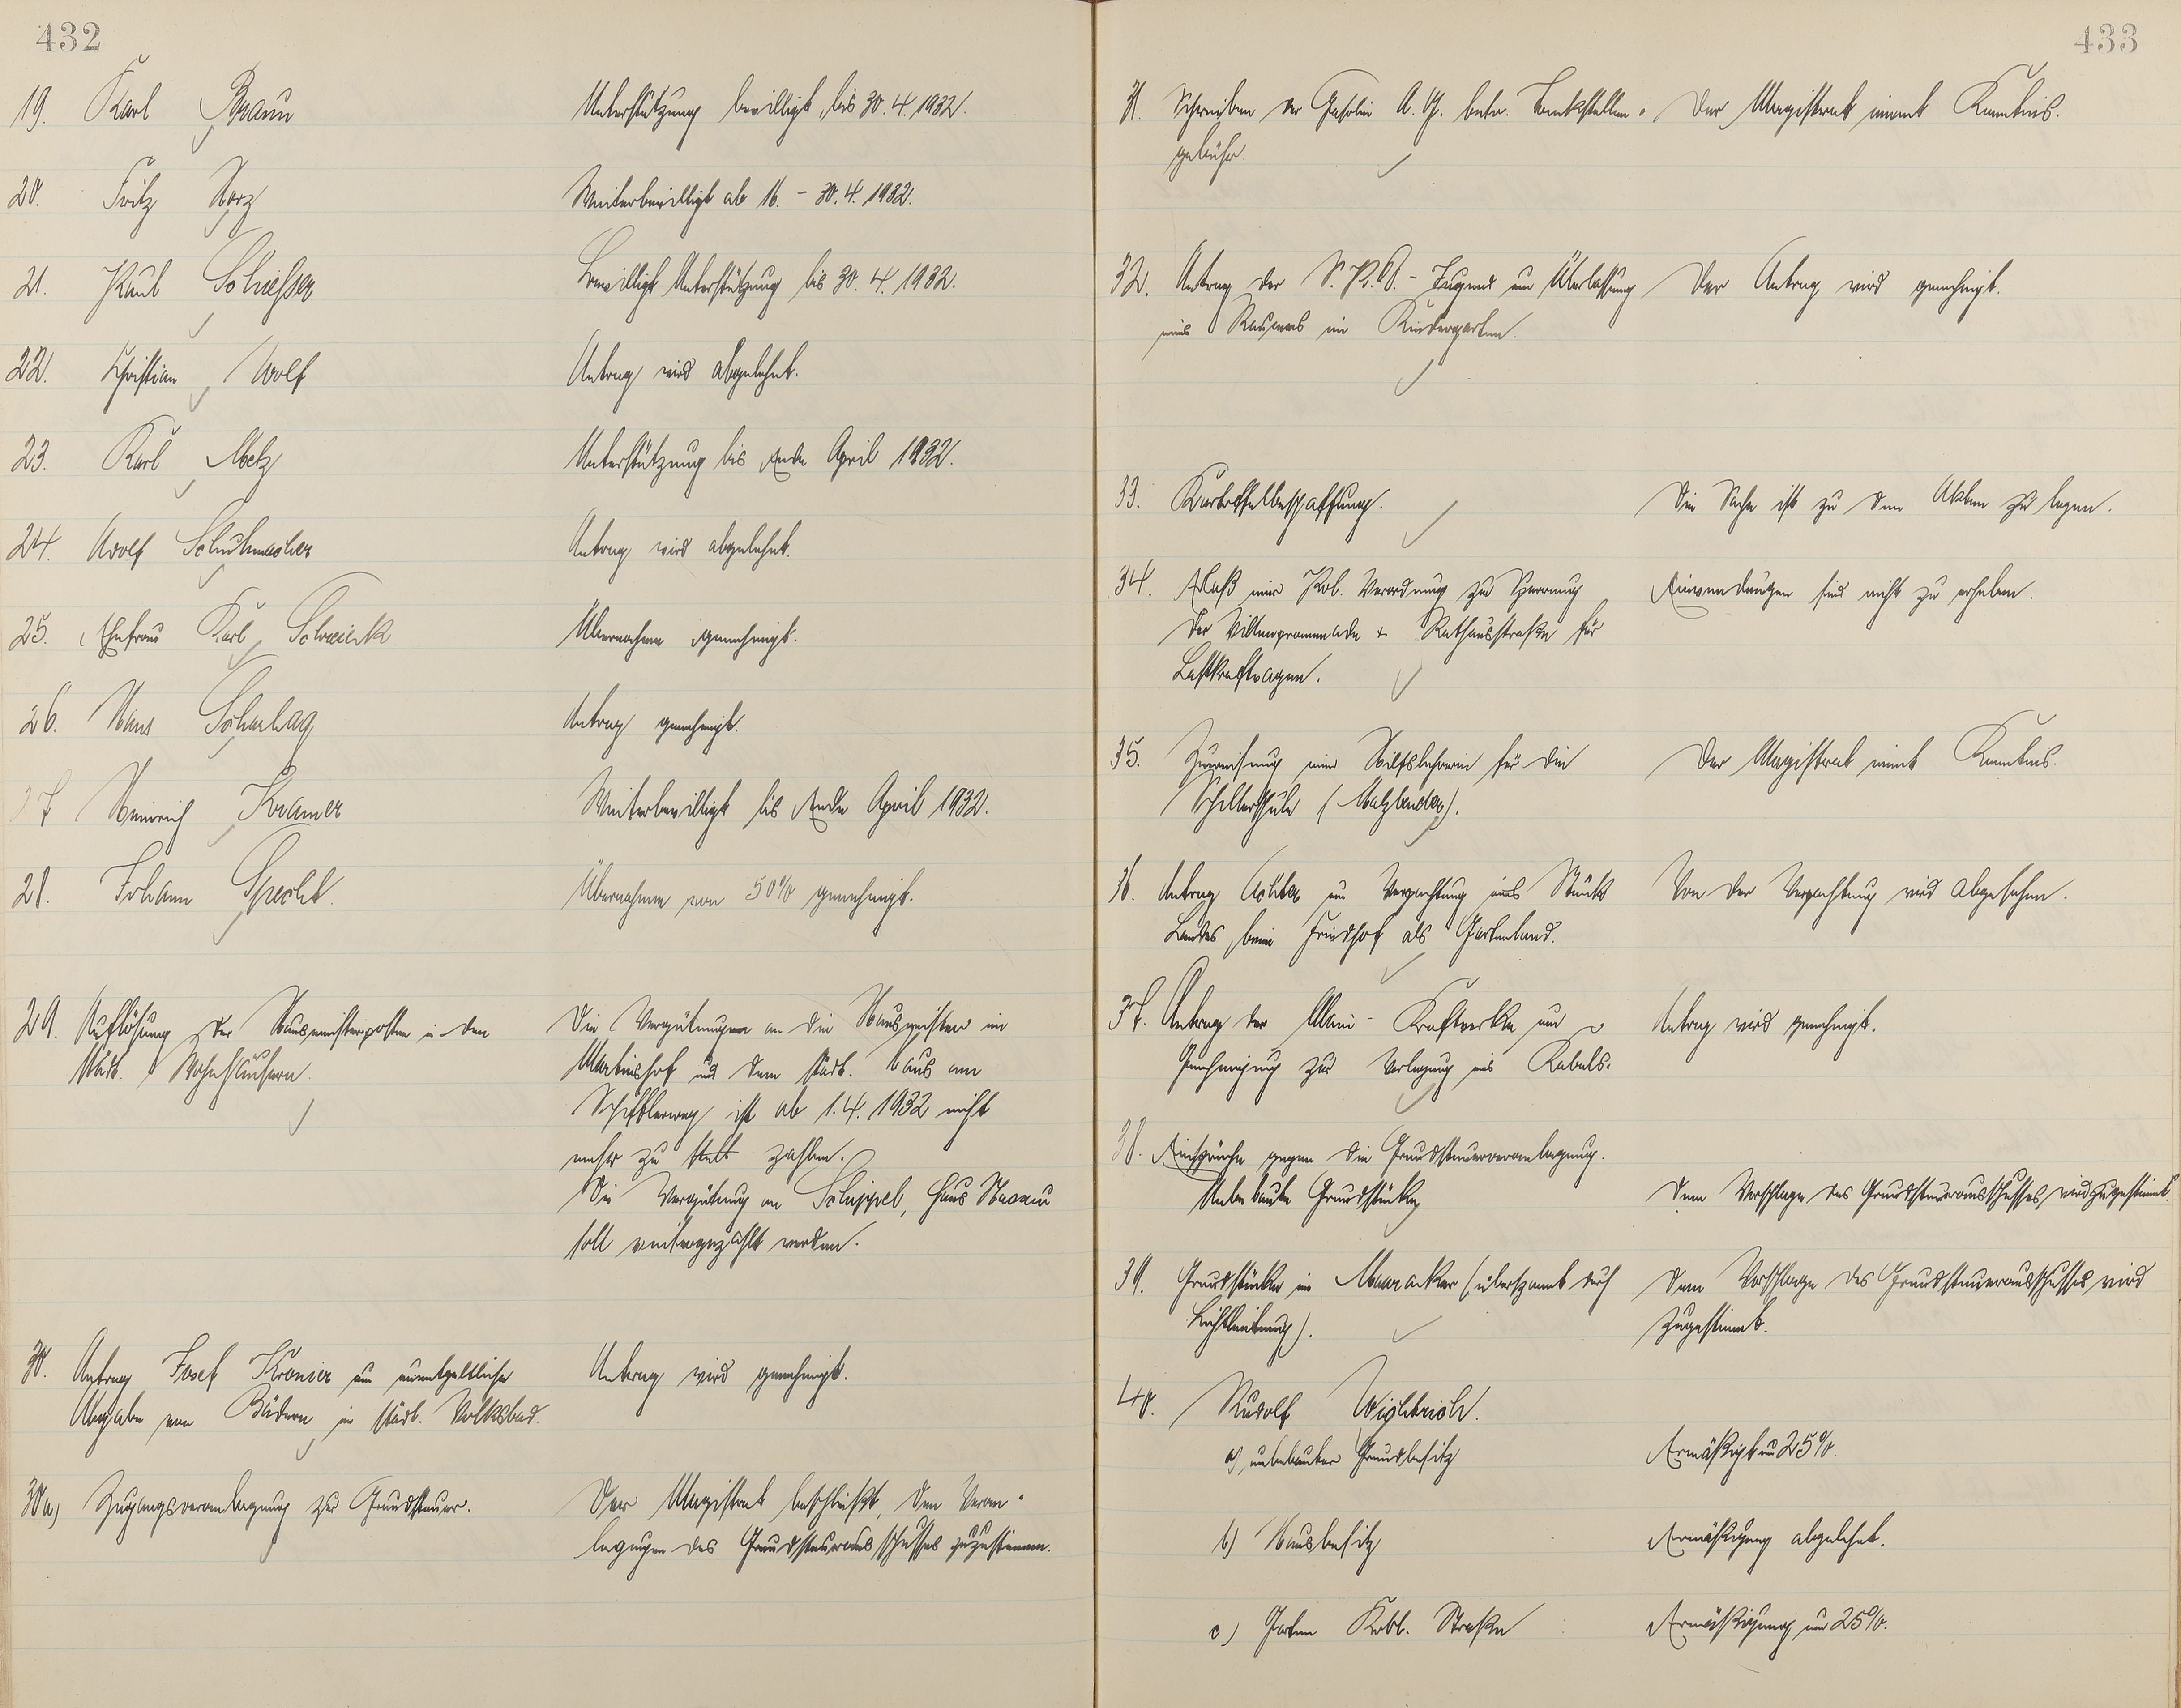 432
19. Karl Braun
Unterstützung bewilligt bis 30.4.1932.
20. Fritz Korz
Weiterbewilligt ab 16. - 30.4.1932.
21. Paul Schiesser
Bewilligt Unterstützung bis 30.4.1932.
22. Christian Wolf
Antrag wird abgelehnt.
23. Karl Metz
Unterstützung bis Ende April 1932.
24. Adolf Schuhmacher
Antrag wird abgelehnt.
25. Ehefrau Karl Schwenk
Übernahme genehmigt.
26. Hans Scharhag
Antrag genehmigt.
27 Heinrich Kramer
Weiterbewilligt bis Ende April 1932.
28. Johann Specht.
Übernahme von 50% genehmigt.
29. Auflösung der Hausmeisterposten in den
städt. Wohnhäusern.
Die Vergütungen an die Hausmeister im
Martinshof und dem städt. Haus am
ist ab 1.4.1932 nicht
mehr zu zahlen.
Die Vergütung an Schippel, Haus Nassau
soll weitergezahlt werden.
30. Antrag Josef Kronier um unentgeltliche
Abgabe von Bädern im städt. Volksbad.
Antrag wird genehmigt.
30a) Zugangsveranlagung zur Grundsteuer.
Der Magistrat beschließt, den Veran-
lagungen des Grundsteuerausschusses zuzustimmen.
433
31. Schreiben der Gasolin A.G. betr. Tankstellen-
gebühr.
Der Magistrat nimmt Kenntnis.
32. Antrag der S.P.D.-Jugend um Überlassung
eines Raumes im Kindergarten.
Der Antrag wird genehmigt.
33. Kartoffelbeschaffung.
Die Sache ist zu den Akten zu legen.
34. Erlaß einer Pol. Verordnung zur Sperrung
der Villenpromenade + Rathausstraße für
Lastkraftwagen.
Einwendungen sind nicht zu erheben.
35. Zuweisung einer Hilfslehrerin für die
Schillerschule (Malzbender).
Der Magistrat nimmt Kenntnis.
36. Antrag um Verpachtung eines Stücks
Landes beim Friedhof als Gartenland.
Von der Verpachtung wird abgesehen.
37. Antrag der Main-Kraftwerke um
Genehmigung zur Verlegung eines Kabels.
Antrag wird genehmigt.
38. Einsprüche gegen die Grundsteuerveranlagung.
Unbebaute Grundstücke
Dem Vorschlage des Grundsteuerausschusses wird zugestimmt.
39. Grundstücke im (überspannt durch
Lichtleitung).
Dem Vorschlage des Grundsteuerausschusses wird
zugestimmt.
40. Rudolf Wichtrich.
a) unbebauter Grundbesitz
Ermäßigt um 25%.
b) Hausbesitz
Ermäßigung abgelehnt.
c) Garten Straße
Ermäßigung um 25%.